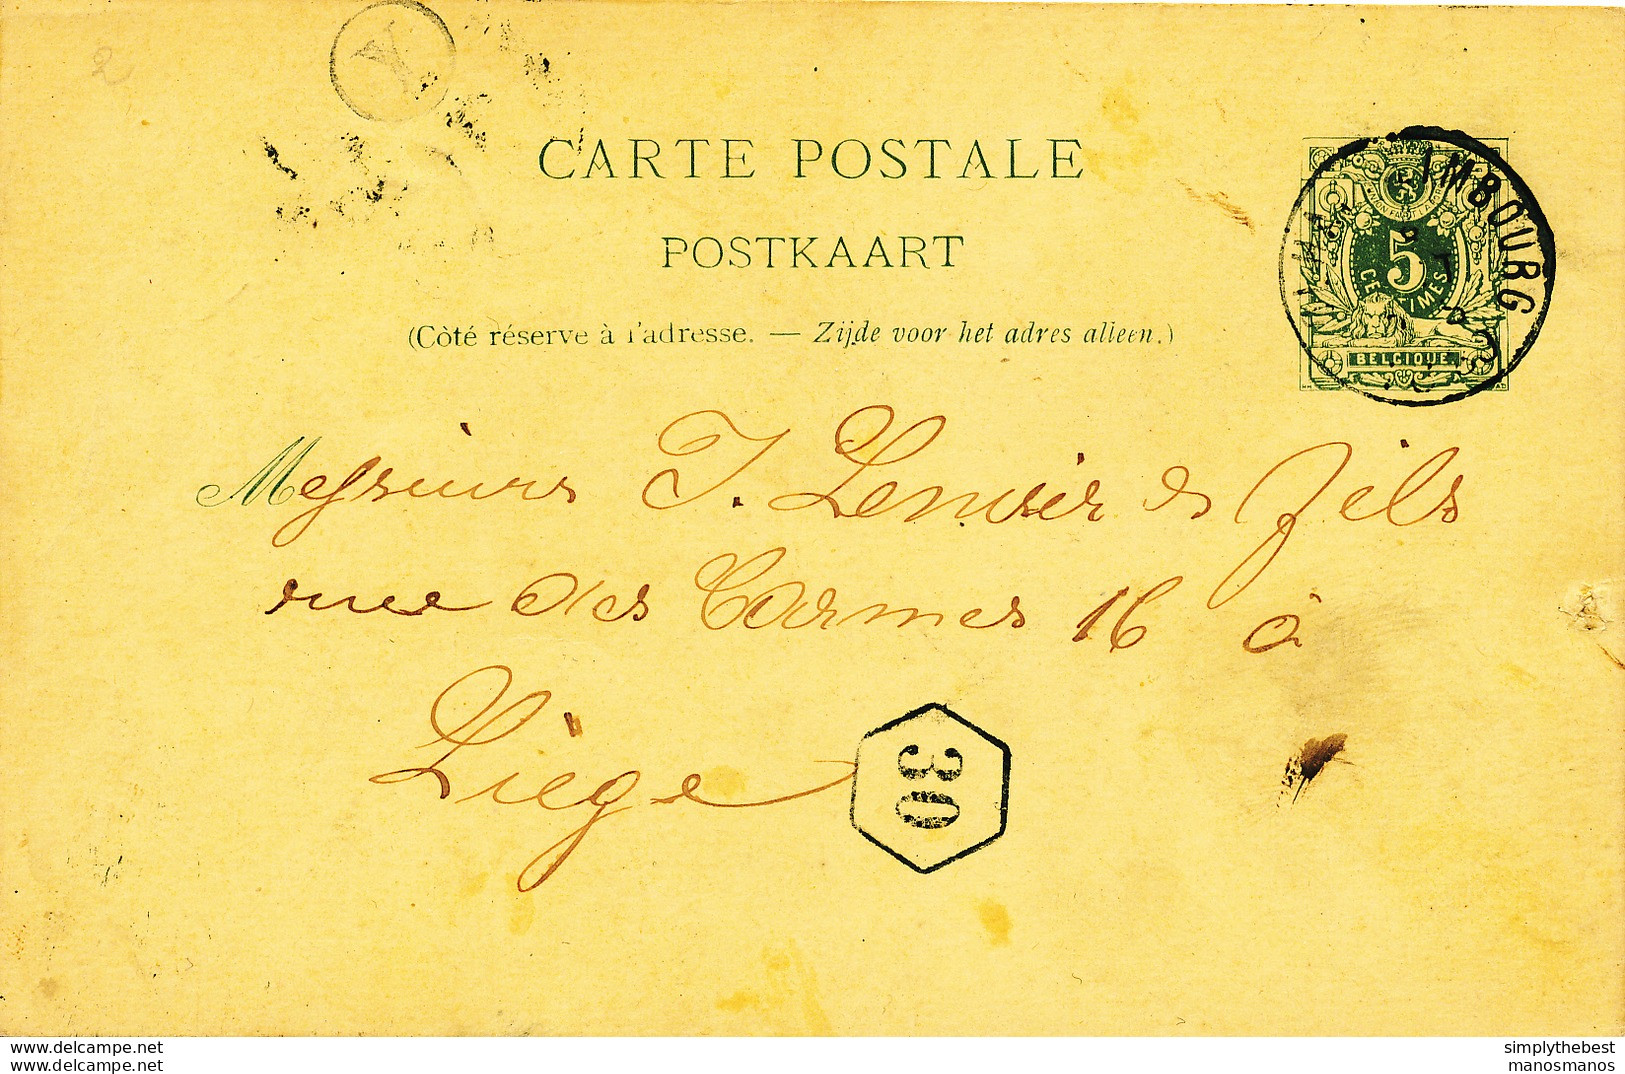 2
Y
CARTE POSTALE
POSTKAART
(Côté réservé à l'adresse. — Zijde voor het adres alleen.)
IMBOURG
5
CENTIMES
BELGIQUE
Messieurs J. Lenoir & fils
rue des Carmes 16 à
Liège
30
www.delcampe.net
www.delcampe.net
simplythebest
manosmanos